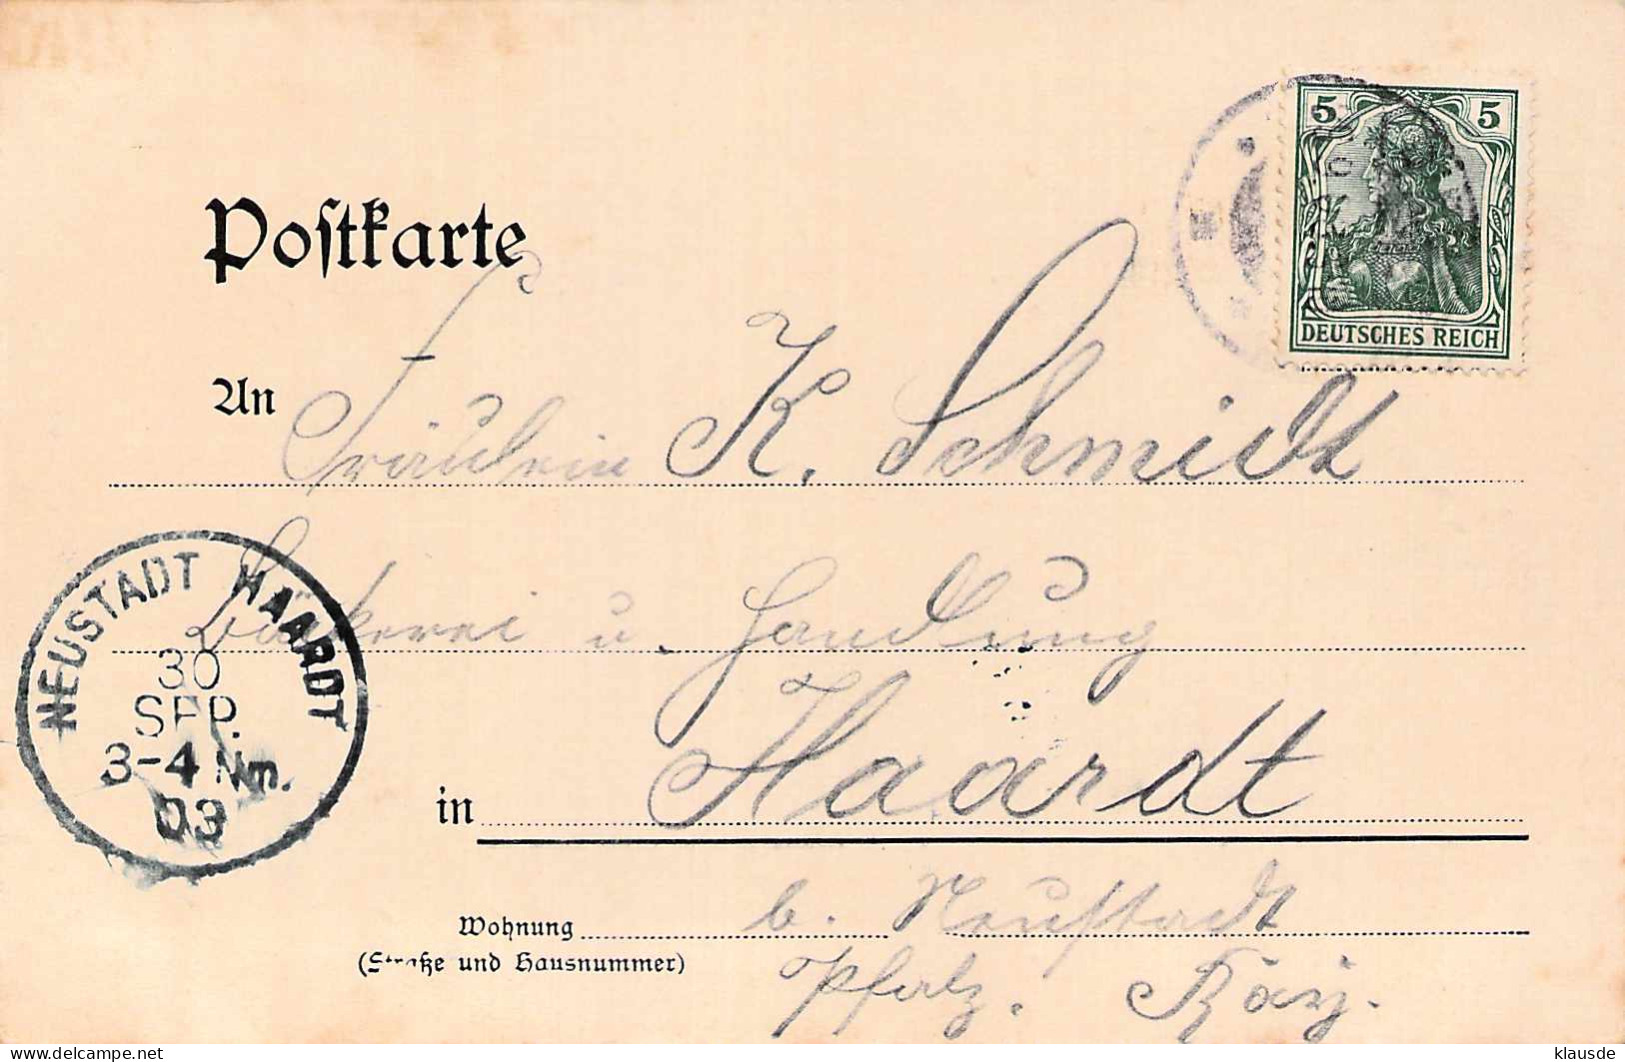 Postkarte
5 5
DEUTSCHES REICH
An Fräulein K. Schmidt
Bäckerei u. Handlung
in Haardt
NEUSTADT HAARDT
30
SEP.
3-4 Nm.
03
Wohnung b. Neustadt
(Straße und Hausnummer) Pfalz.
klausde delcampe.net